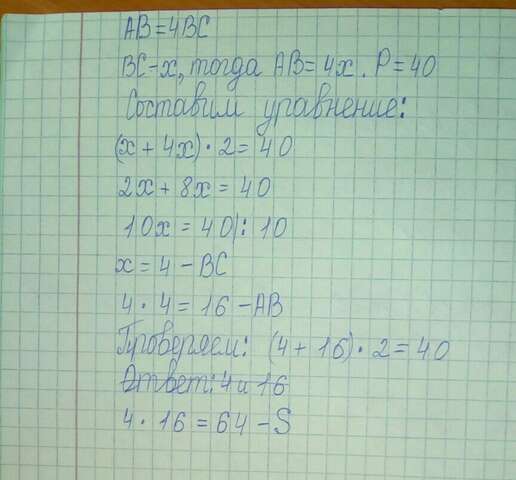 AB=4BC
BC-x, тогда AB=4x. P=40
Составим уравнение:
(x+4x)·2=40
2x+8x=40
10x=40|:10
x=4-BC
4·4=16-AB
Проверяем: (4+16)·2=40
Ответ: 4 и 16
4·16=64-S